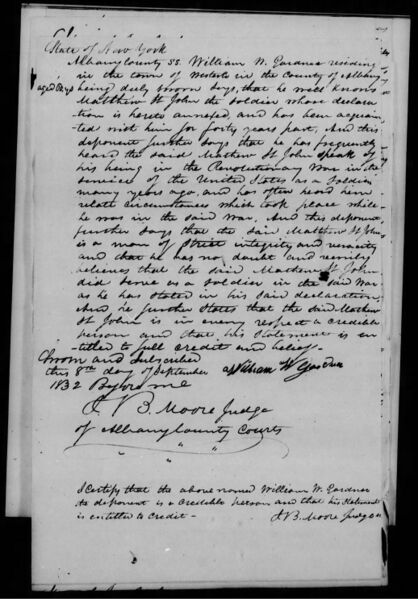 State of New York
Albany County SS. William W. Gardner residing
in the town of Westerlo in the County of Albany
aged 61 yrs
being duly sworn says, that he well knows
Matthew St John the soldier whose declara
tion is hereto annexed, and has been acquain
ted with him for forty years past, And this
deponent further says that he has frequently
heard the said Mathew St John speak of
his being in the Revolutionary War in the
service of the United States as a Soldier
many years ago, and has often heard him
relate circumstances which took place while
he was in the said War. And this deponent
further says that the said Matthew St John
is a man of Strict integrity and veracity
and that he has no doubt and verrily
believes that the said Mathew St John
did serve as a soldier in the said War
as he has stated in his said declaration
And he further States that the said Mathew
St John is in every respect a credible
person and that his Statement is en
titled to full credit and belief.
Sworn and Subscribed
this 8th day of September William W Gardner
1832 Before me
J V B. Moore Judge
of Albany County Courts
I Certify that the above named William W. Gardner
the deponent is a credible person and that his Statement
is entitled to credit -
J V B. Moore Judge